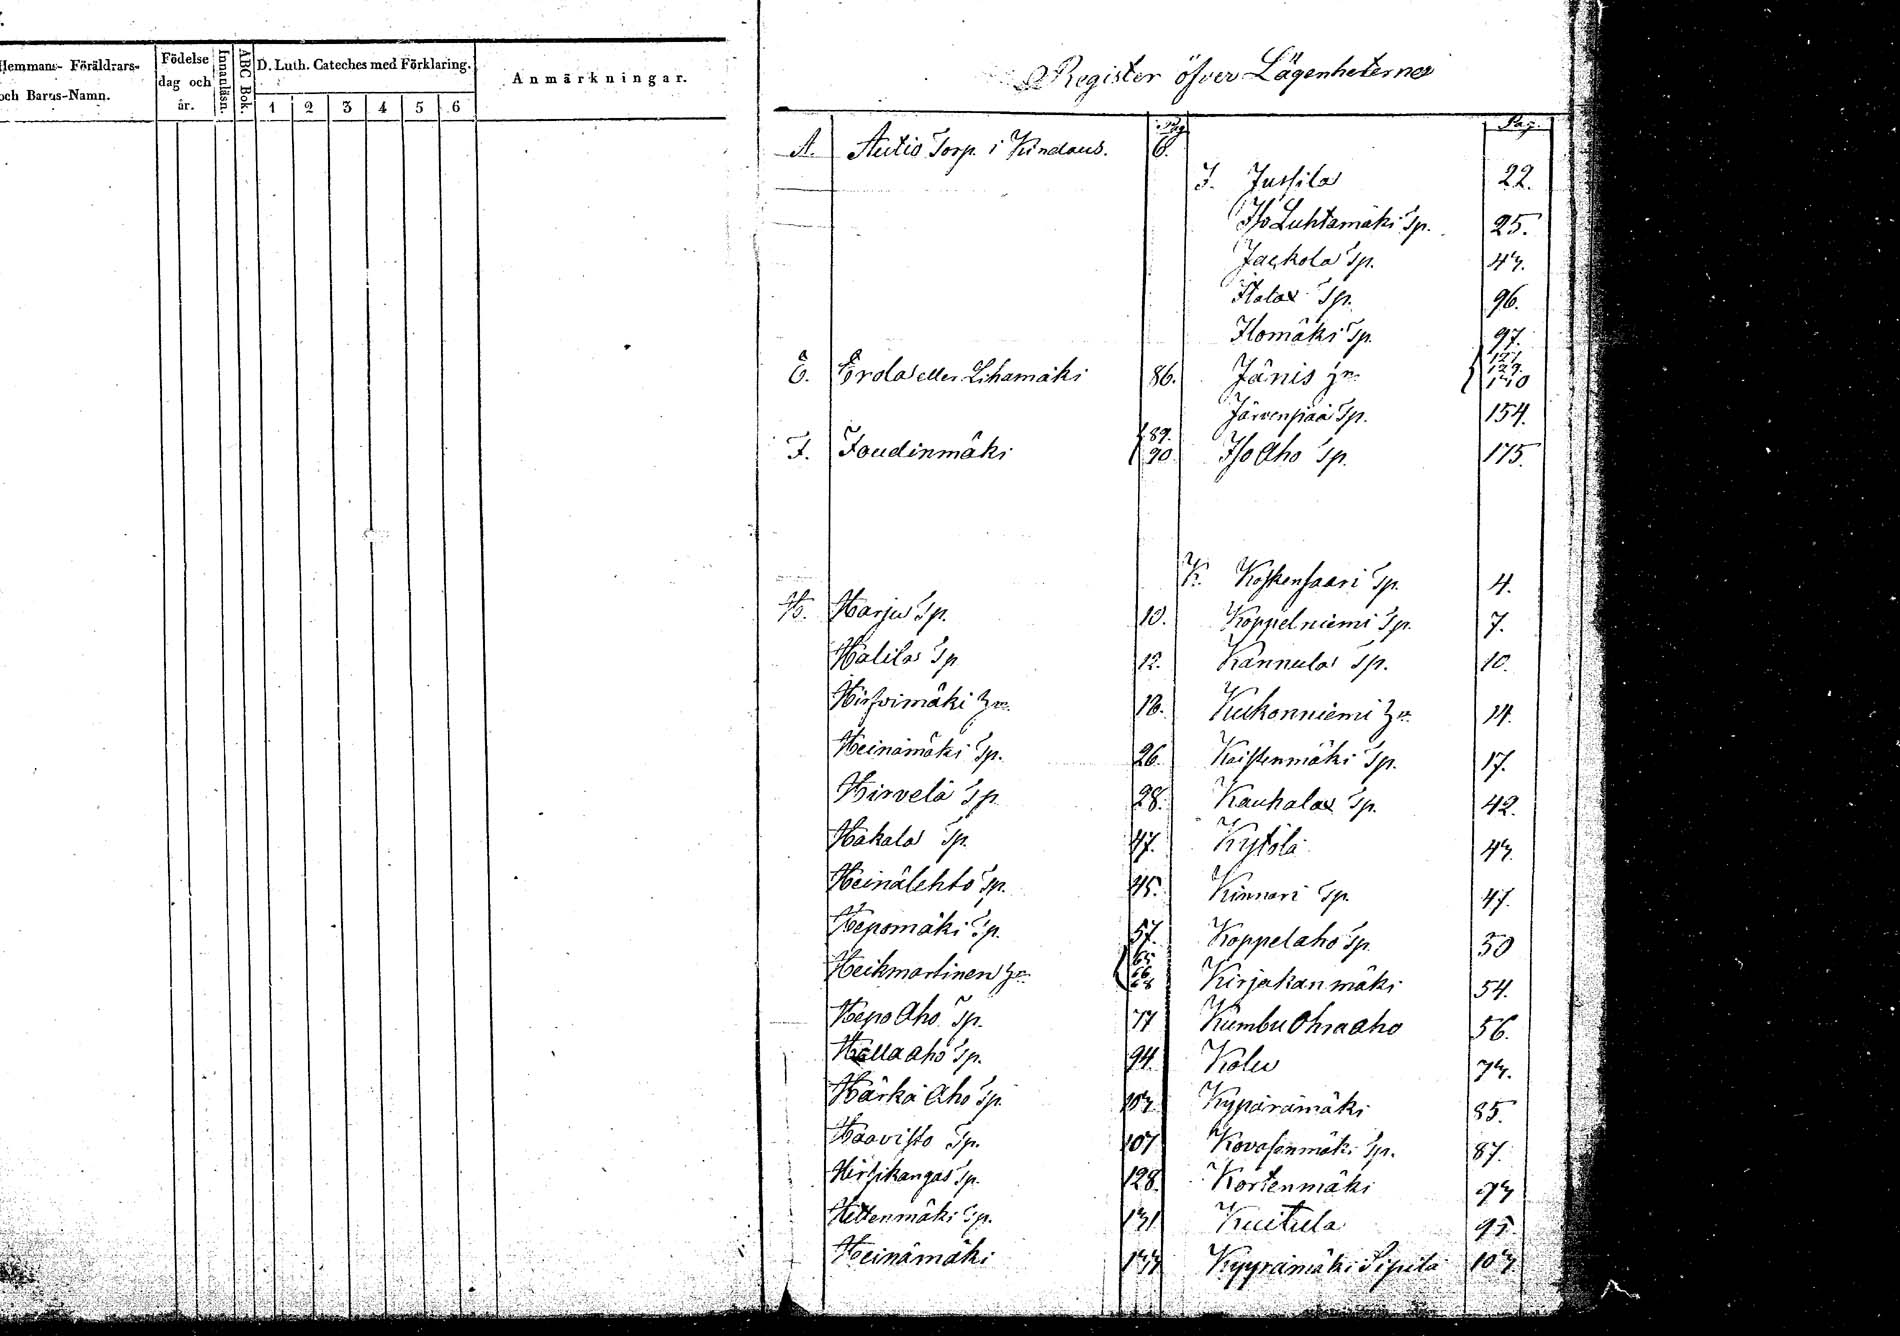 Hemmans- Föräldrars-
och Barns-Namn.
Födelse
dag och
år.
Innanläsn.
ABC Bok.
D. Luth. Cateches med Förklaring.
1 2 3 4 5 6
Anmärkningar.
Register öfver Lägenheterna
Pag.
A. Autio Torp. i Kindaus. 6.
E. Erola eller Lihamäki 86.
F. Foudinmäki 89. 90
H. Harju Tp. 10.
Halila Tp 12.
Hirsvimäki 18.
Heinämäki Tp. 26.
Hirvelä Tp. 28.
Hakala Tp. 47.
Heinälehto Tp. 45.
Hepomäki Tp. 57.
Heikmartinen 65 66 68
Hepo Aho Tp. 77
Hallaaho Tp. 94.
Härkä Aho Tp. 103
Haavisto Tp. 107
Hirsikangas Tp. 128.
Hettenmäki Tp. 131
Heinämäki 133
Pag.
J. Jussila 22.
Iso Luhtamäki Tp. 25.
Jaakola Tp. 43.
Itala Tp. 96.
Ilomäki Tp. 97.
Jänis 127. 129. 130
Järvenpää Tp. 154.
Iso Aho Tp. 175.
K. Koskensaari Tp. 4.
Koppelniemi Tp. 7.
Kannula Tp. 10.
Kukonniemi 14.
Kaistenmäki Tp. 17.
Kauhala Tp. 42.
Kytölä 43.
Kinnari Tp. 47.
Koppelaho Tp. 50
Kirjakanmäki 54.
Kumbu Ohraaho 56.
Kolu 73.
Kypärämäki 85.
Kovasenmäki Tp. 87.
Kortenmäki 93
Kuitula 95.
Kyyrämäki Sipilä 103.